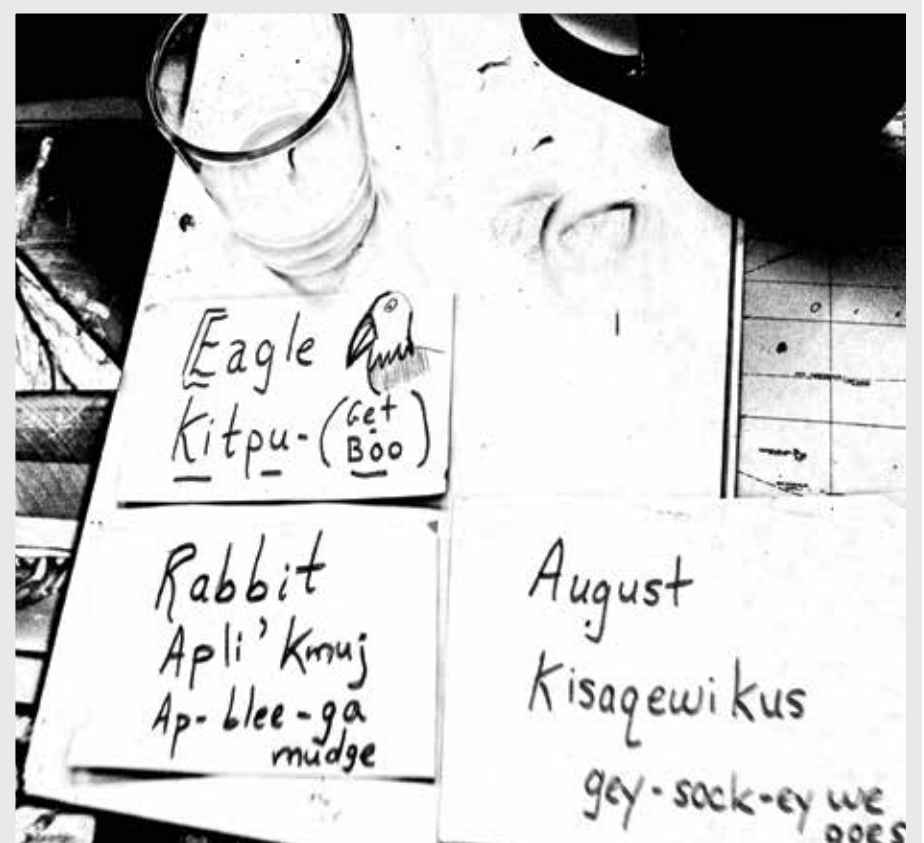 Eagle
Kitpu-(Get
Boo)
Rabbit
Apli'kmuj
Ap-blee-ga
mudge
August
Kisaqewikus
gey-sock-ey we
goes